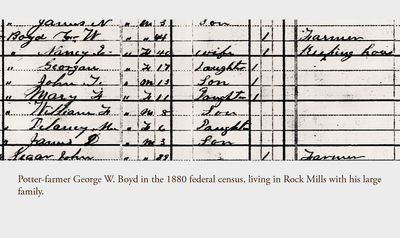 James N " m 3 Son
Boyd G. W " " 44 1 Farmer
" Nancy E. " F 40 wife 1 Keeping hous
" Georgan " F 17 Daughter 1
" John T. " m 13 Son 1
" Mary F " F 11 Daught 1
" William H " m 8 Son
" " F 6 Daught
" James D " m 3 Son
John " " 1 Farmer
Potter-farmer George W. Boyd in the 1880 federal census, living in Rock Mills with his large
family.